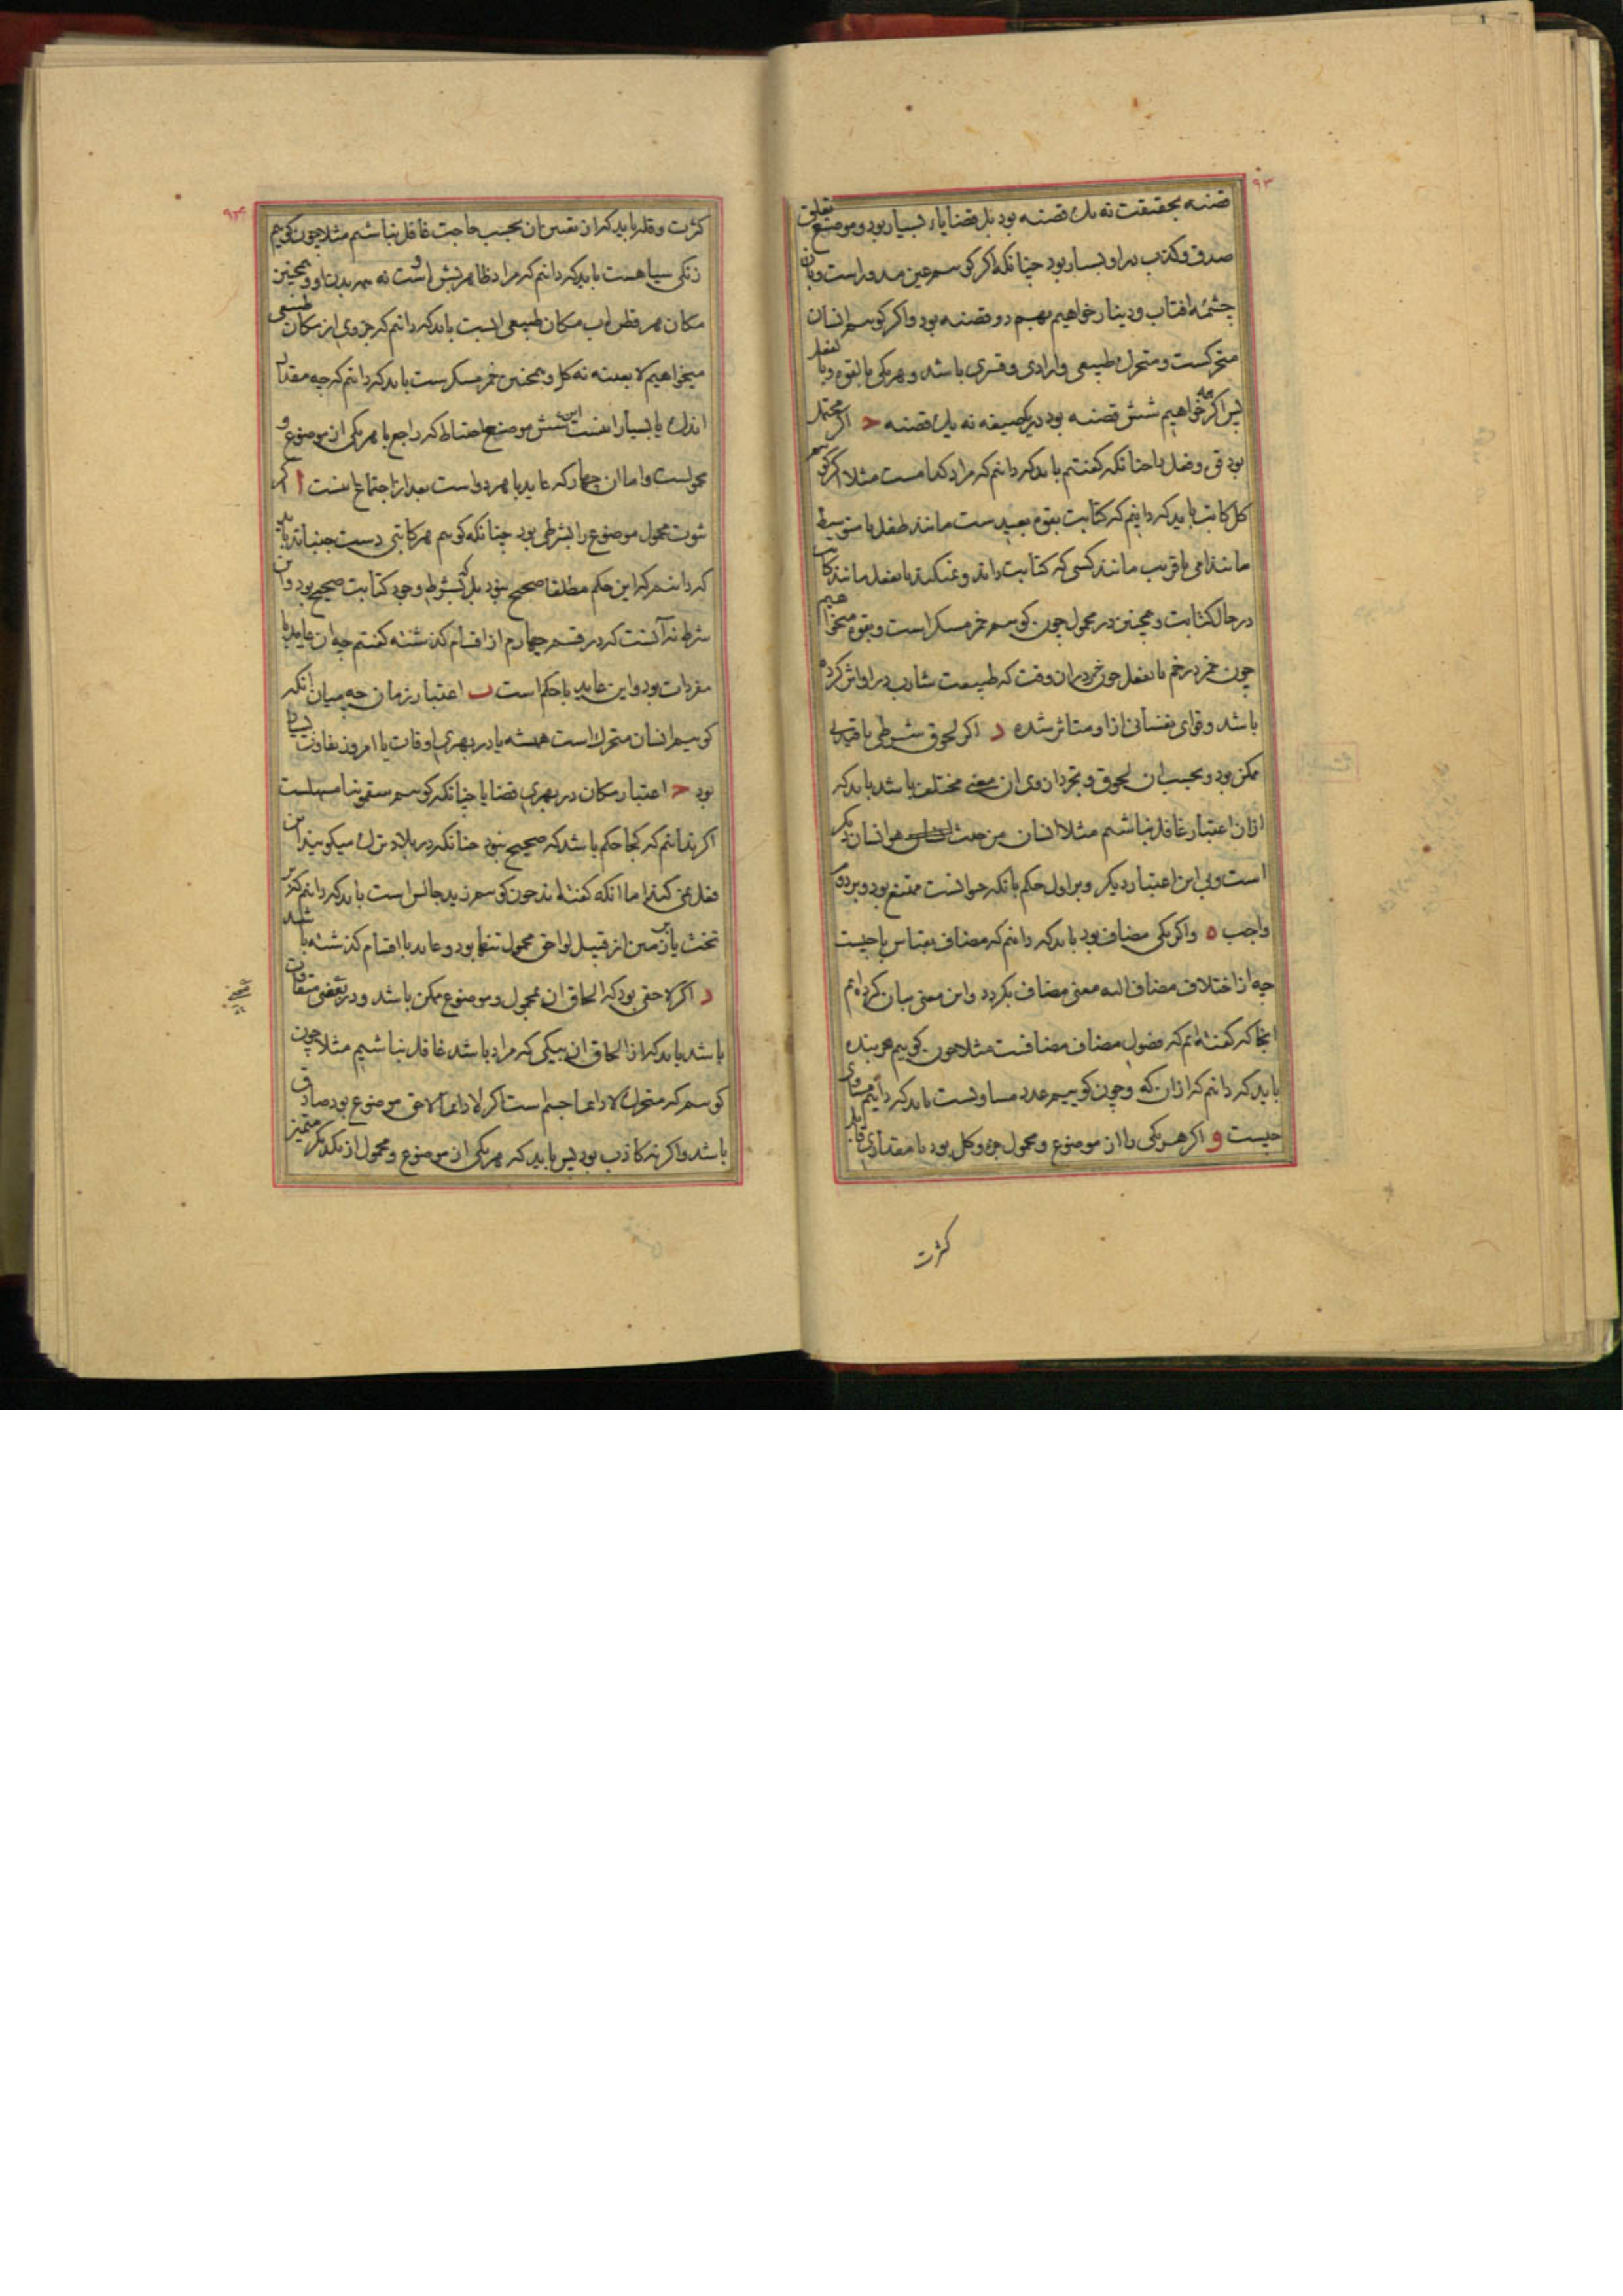 ۹۳
قضیه بحقیقت نه یک قضیه بود بل قضایاء بسیار بود و موضع تعلق
صدق و کذب در او بسیار بود چنانکه اگر کوییم عین مدور است و بان
چشمه افتاب و دینار خواهیم بهم دو قضیه بود و اگر کوییم انسان
متحرکست و متحرک طبیعی و ارادی و قسری باشد و هر یکی بالقوه و یا بفعل
پس اگر همه خواهیم شش قضیه بود در یک صیغه نه یک قضیه ح اگر محتمل
بود قوی و فعل را چنانکه کفتیم باید که دانیم که مراد کدامست مثلا اگر کوییم
کل کاتب باید که دانیم که کتابت بقوه بعیدست مانند طفل یا متوسط
مانند امی یا قریب مانند کسی که کتابت داند و نمیکند یا بفعل مانند کاتب
در حال کتابت و همچنین در محمول چون کوییم خمر مسکر است و بقوه میخواهیم
چون خمر در خم یا بفعل چون خمر در ان وقت که طبیعت شارب در او اثر کرده
باشد و قوای نفسانی از او متاثر شده د اگر لحوق شرطی یا قیدی
ممکن بود و بحسب ان لحوق و تجرد از وی ان معنی مختلف باشد باید که
ازان اعتبار غافل نباشیم مثلا انسان من حیث هو انسان دیکر
است و بی این اعتبار دیکر و بر اول حکم بانکه حیوانست ممتنع بود و بر دوم
واجب ه و اگر یکی مضاف بود باید که دانیم که مضاف بقیاس با چیست
چه از اختلاف مضاف الیه معنی مضاف بکردد و این معنی بیان کرده‌ایم
انجا که کفته‌ایم که فصول مضاف مضافست مثلا چون کوییم هر بنده
باید که دانیم که ازان که و چون کوییم عدد مساویست باید که دانیم مساوی
چیست و اگر هر یکی را از موضوع و محمول جزو و کل بود یا مقداری قابل
کثرت
۹۴
کثرت و قلت باید که از تعیین ان بحسب حاجت غافل نباشیم مثلا چون کوییم
زنکی سیاهست باید که دانیم که مراد ظاهر بشره اوست نه همه بدن او و همچنین
مکان هر قطره اب مکان طبیعی ابست باید که دانیم که جزوی از مکان طبیعی
میخواهیم لا بعینه نه کل و همچنین خمر مسکرست باید که دانیم که چه مقدار
اندک یا بسیار اینست این شش موضع احتیاط که راجع با هر یکی از موضوع و
محمولست و اما ان چهار که عاید با هر دو است بعد از اجتماع اینست ا اگر
ثبوت محمول موضوع را بشرطی بود چنانکه کوییم هر کاتبی دست جنباند باید
که دانیم که این حکم مطلقا صحیح نبود بل که بشرط وجود کتابت صحیح بود و این
شرط نه آنست که در قسم چهارم از اقسام کذشته کفتیم چه ان عاید با
مفردات بود و این عاید با حکم است ب اعتبار زمان چه میان انکه
کوییم انسان متحرک است همیشه یا در بهری اوقات یا امروز تفاوت بسیار
بود ح اعتبار مکان در بهری قضایا چنانکه کوییم سقمونیا مسهلست
اگر ندانیم که کجا حکم باشد که صحیح نبود چنانکه در بلاد ترک میکویند این
فعل نمی کند اما انکه کفته‌اند چون کوییم زید جالس است باید که دانیم که بر
تخت یا بر زمین از قبیل لواحق محمول تنها بود و عاید با اقسام کذشته باشد
د اگر لاحقی بود که الحاق ان بمحمول و موضوع ممکن باشد و در بعضی متفاوت
باشد باید که از الحاق ان بیکی که مراد باشد غافل نباشیم مثلا چون
کوییم که متحرک لا دائما جسم است اگر لا دائما لاحق موضوع بود صادق
باشد و اگر نه کاذب بود پس باید که هر یکی از موضوع و محمول از یکدیگر متمیز